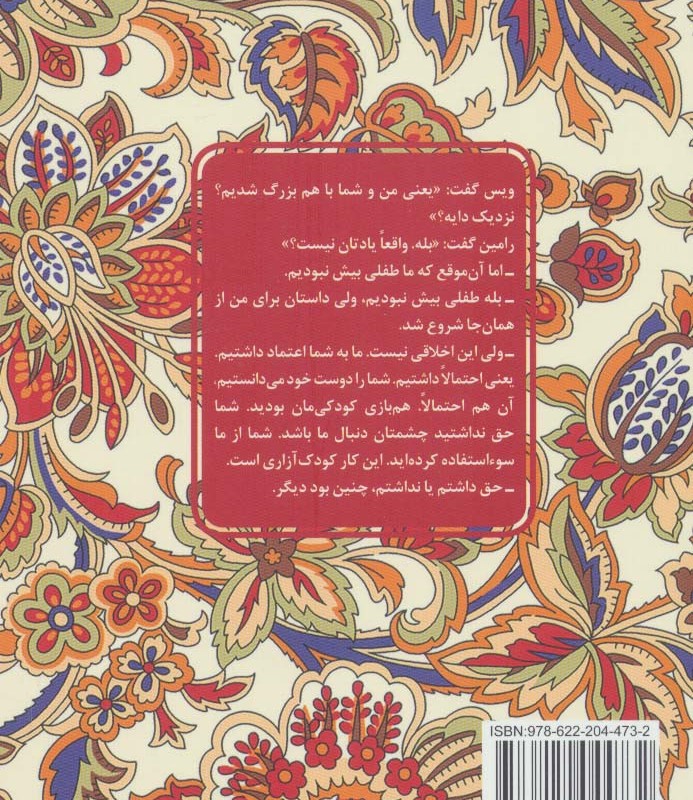 ویس گفت: «یعنی من و شما با هم بزرگ شدیم؟
نزدیک دایه؟»
رامین گفت: «بله. واقعاً یادتان نیست؟»
ـ اما آن‌موقع که ما طفلی بیش نبودیم.
ـ بله طفلی بیش نبودیم، ولی داستان برای من از
همان‌جا شروع شد.
ـ ولی این اخلاقی نیست. ما به شما اعتماد داشتیم.
یعنی احتمالاً داشتیم. شما را دوست خود می‌دانستیم،
آن هم احتمالاً. هم‌بازی کودکی‌مان بودید. شما
حق نداشتید چشمتان دنبال ما باشد. شما از ما
سوءاستفاده کرده‌اید. این کار کودک‌آزاری است.
ـ حق داشتم یا نداشتم، چنین بود دیگر.
ISBN:978-622-204-473-2